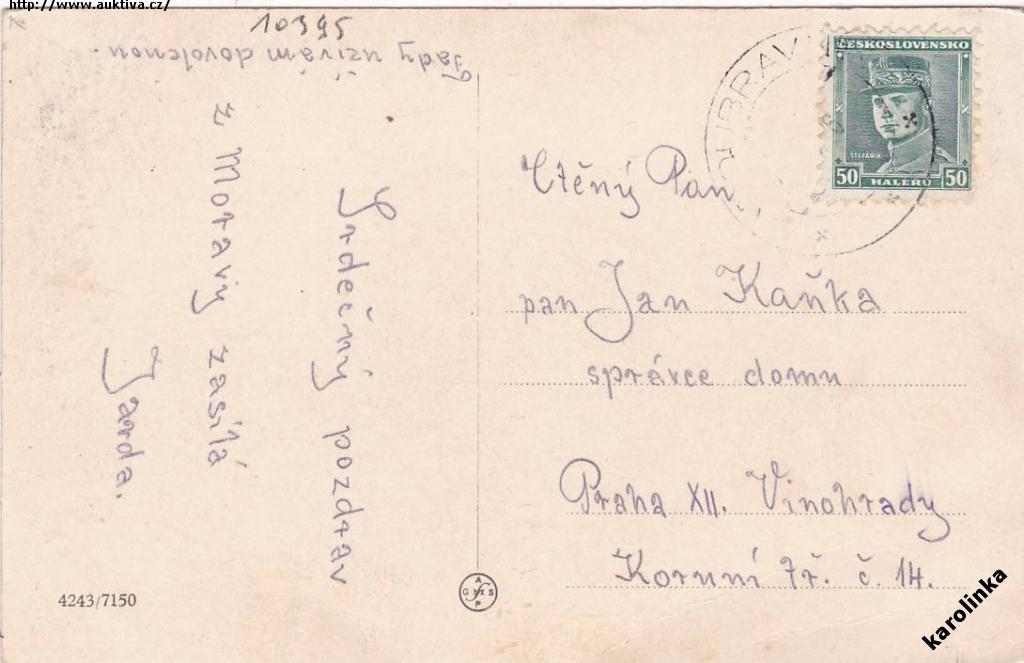 http://www.auktiva.cz/
10395
Tady užívám dovolenou.
Srdečný pozdrav
z Moravy zasílá
Jarda.
4243/7150
GRAFIS
ČESKOSLOVENSKO
ŠTEFÁNIK
50 HALÉŘŮ 50
Ctěný Pan
pan Jan Kaňka
správce domu
Praha XII. Vinohrady
Korunní tř. č. 14.
karolinka